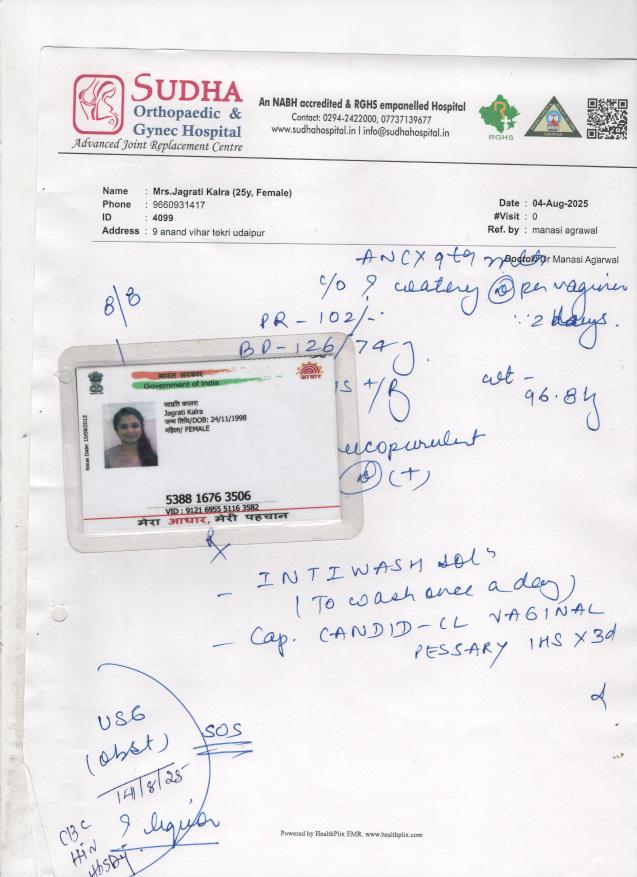 SUDHA
Orthopaedic &
Gynec Hospital
Advanced Joint Replacement Centre
An NABH accredited & RGHS empanelled Hospital
Contact: 0294-2422000, 07737139677
www.sudhahospital.in I info@sudhahospital.in
RGHS
Name : Mrs.Jagrati Kalra (25y, Female)
Phone : 9660931417
ID : 4099
Address : 9 anand vihar tekri udaipur
Date : 04-Aug-2025
#Visit : 0
Ref. by : manasi agrawal
Doctor: Dr Manasi Agarwal
ANC X 9th mth
c/o ? watery D per vaginum
∵ 2 days.
B/B
PR - 102/-
BP - 126/74
wt -
96.8
भारत सरकार
Government of India
आधार
Issue Date: 15/09/2012
जाग्रति कालरा
Jagrati Kalra
जन्म तिथि/DOB: 24/11/1998
महिला/ FEMALE
5388 1676 3506
VID : 9121 6955 5116 3582
मेरा आधार, मेरी पहचान
ucopurulent
D (+)
Rx
- INTIWASH soln
(To wash once a day)
- Cap. CANDID-CL VAGINAL
PESSARY 1HS X 3d
USG
(obst)
SOS
14/8/25
? liquor
CBC
Powered by HealthPlix EMR. www.healthplix.com